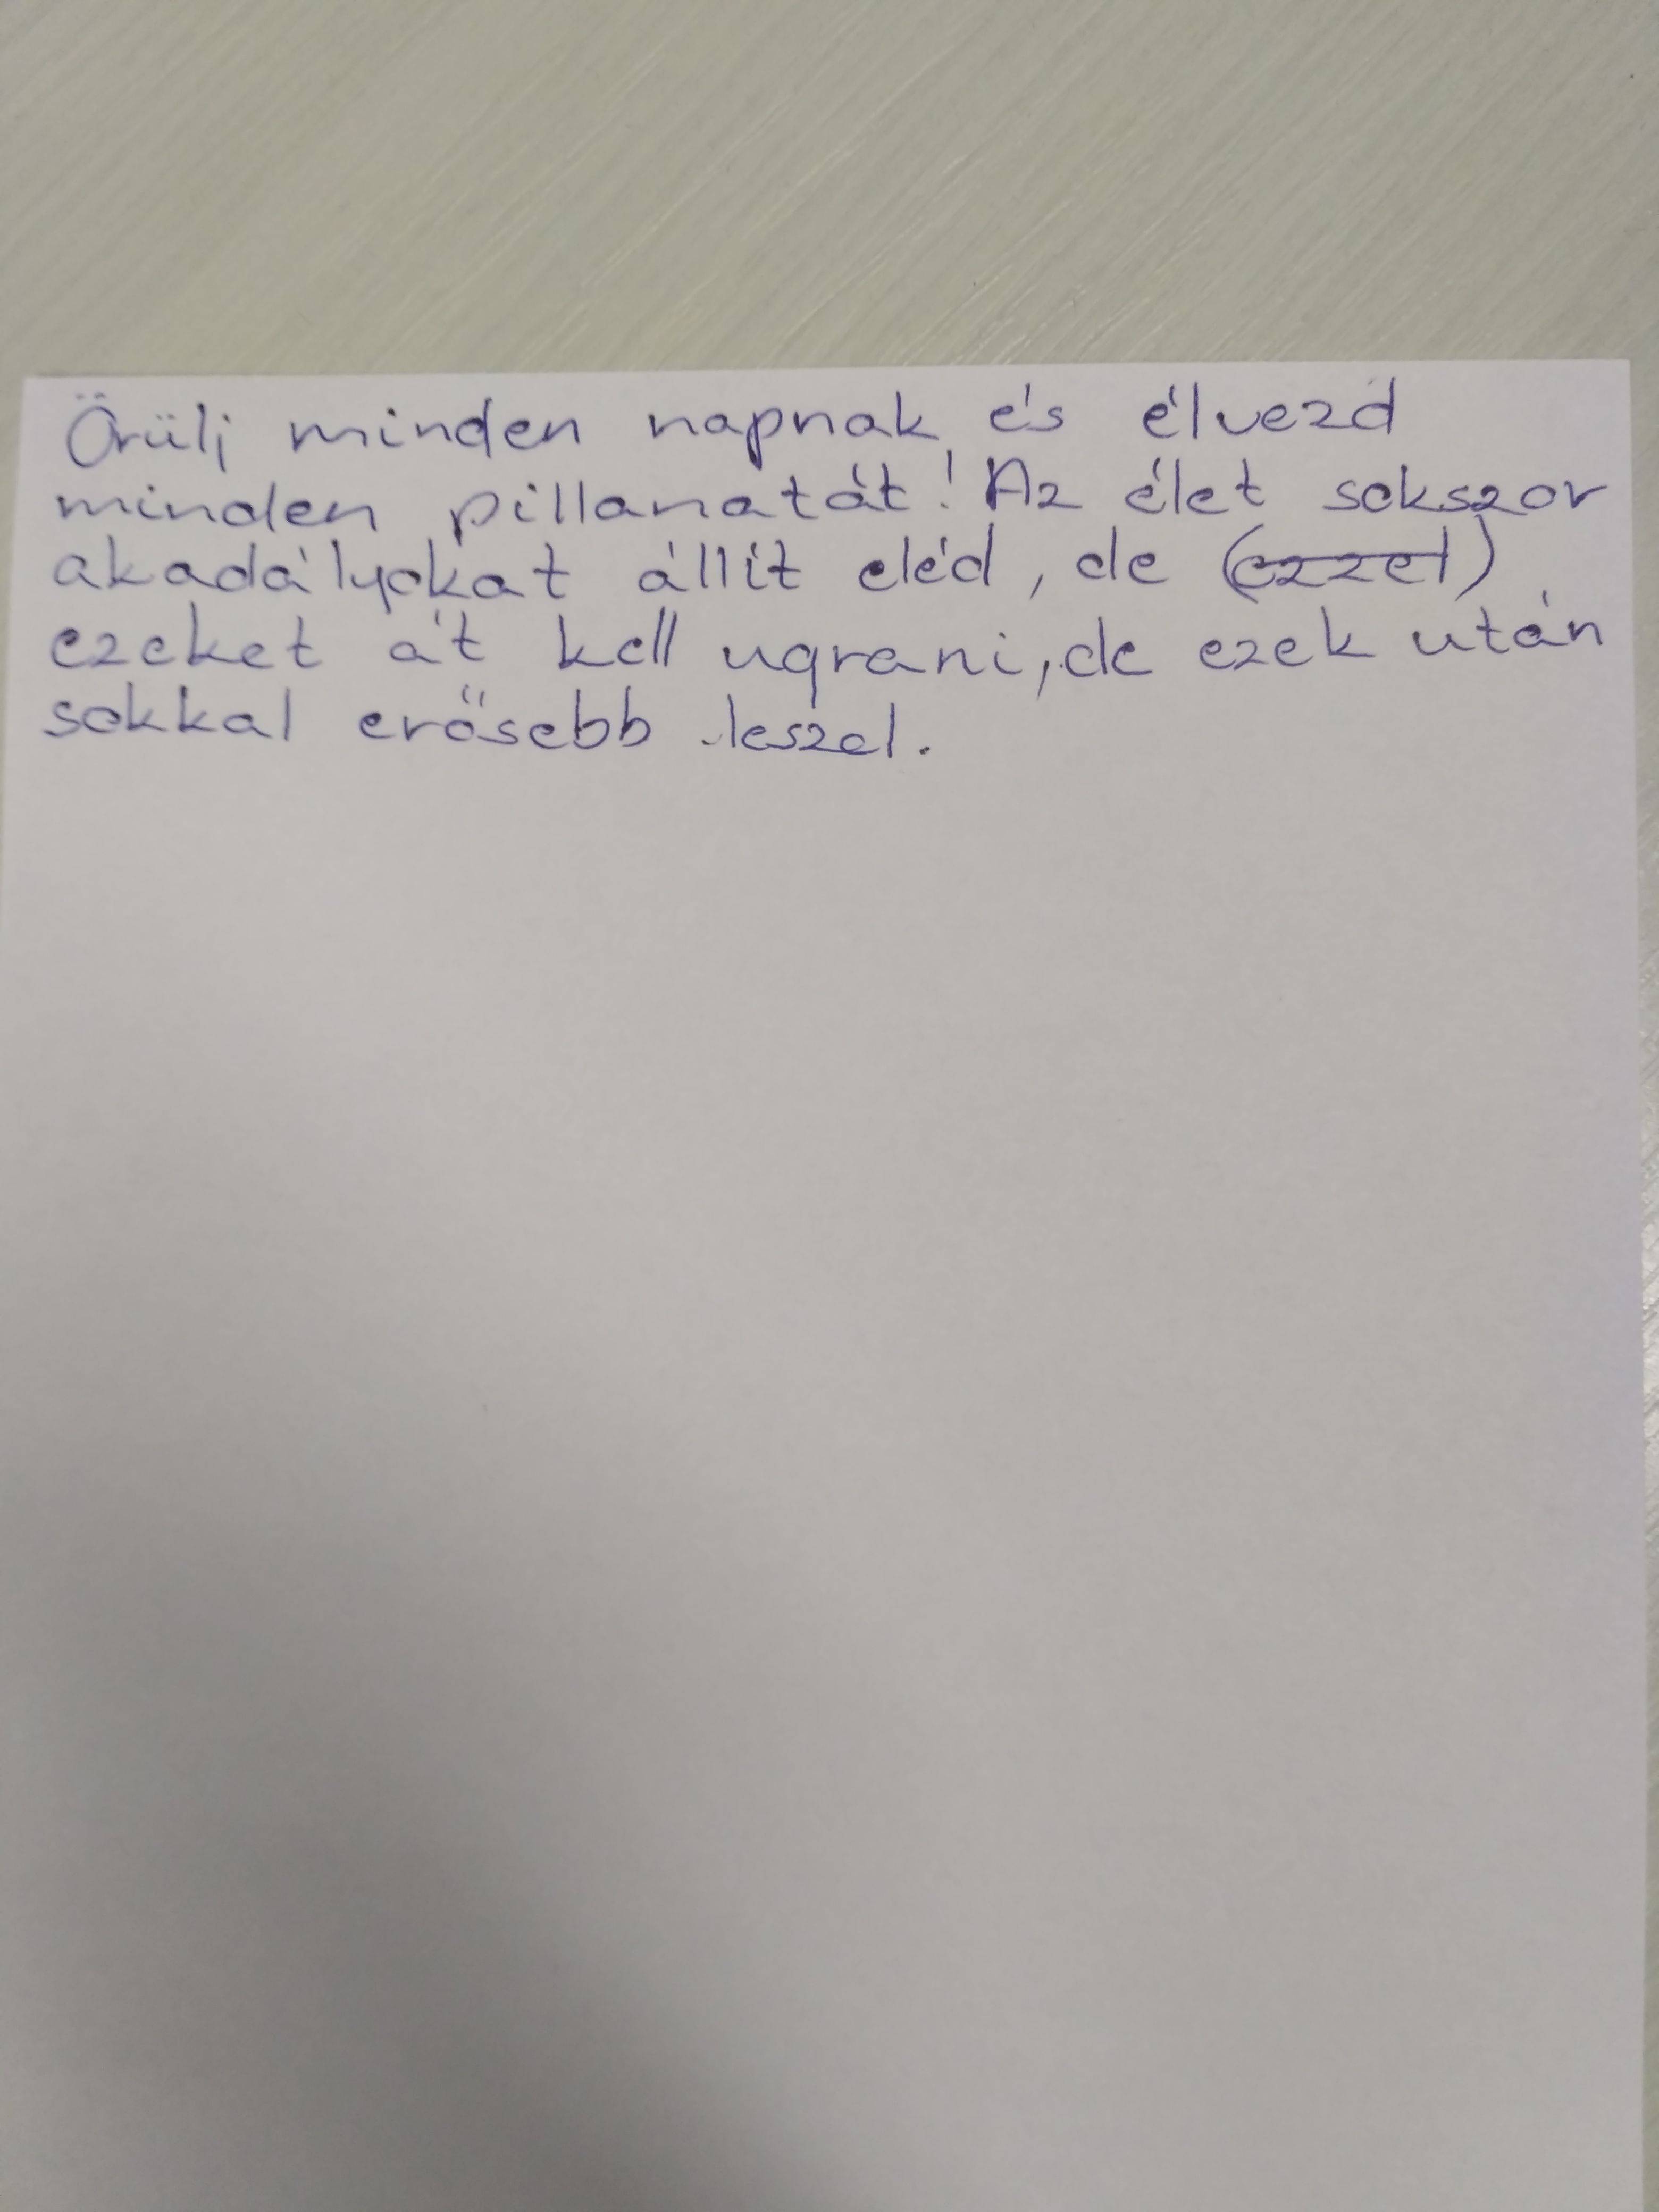 Örülj minden napnak és élvezd
minden pillanatát! Az élet sokszor
akadályokat állít eléd, de (ezzel)
ezeket át kell ugrani, de ezek után
sokkal erősebb leszel.